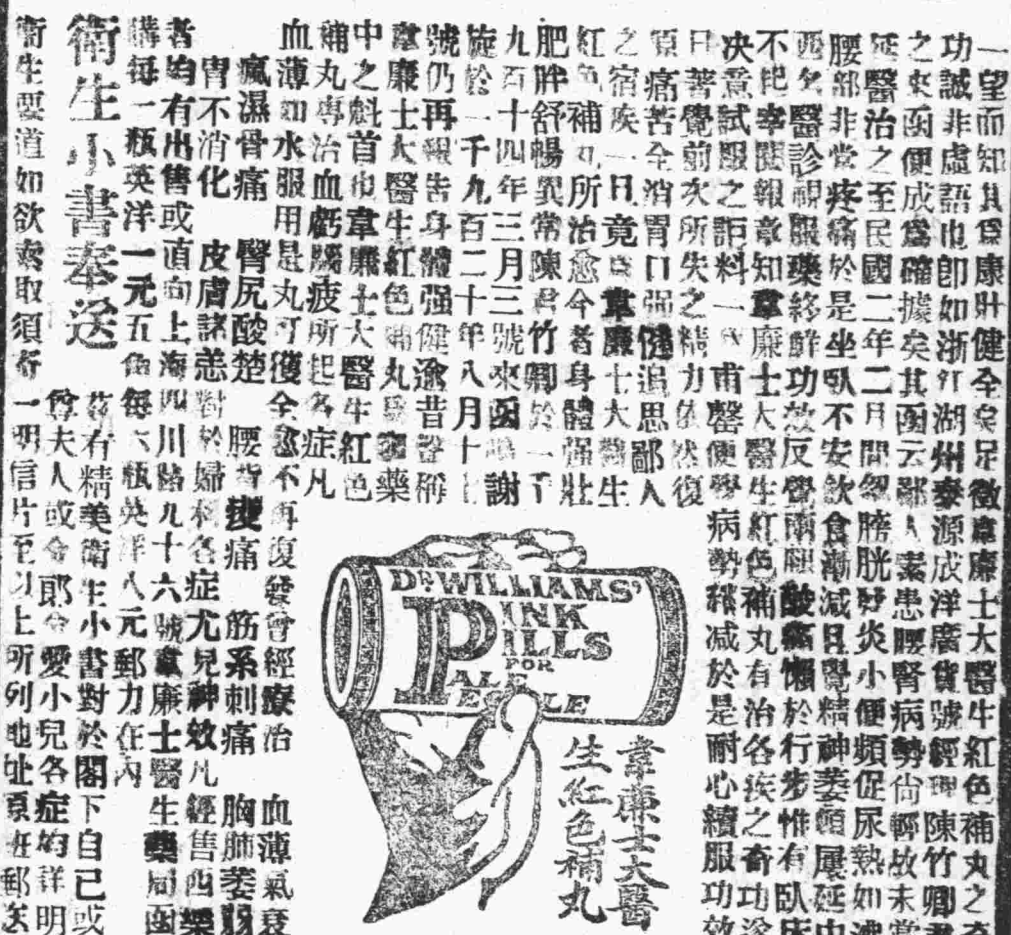 一望而知其為康壯健全矣足徵韋廉士大醫生紅色補丸之
功誠非虛語也卽如浙江湖州泰源成洋廣貨號經理陳竹卿君
之來函便成為確據矣其函云鄙人素患腰腎病勢尙輕故未嘗
延醫治之至民國二年二月間忽膀胱發炎小便頻促尿熱如沸
腰部非常疼痛於是坐臥不安飲食漸減且覺精神萎頓屢延中
西名醫診視服藥終鮮功效反覺兩腿酸痛懶於行步惟有臥床
不起幸閱報章知韋廉士大醫生紅色補丸有治各疾之奇功遂
決意試服之詎料一瓶甫罄便學病勢稍减於是耐心續服功效
日著覺前次所失之精力依然復
頭痛苦全消胃口强健追思鄙人
之宿疾一旦竟為韋廉士大醫生
紅色補丸所治愈今者身體强壯
肥胖舒暢異常陳君竹卿於一千
九百十四年三月三號來函鳴謝
旋於一千九百二十年八月十七
號仍再報告身體强健逾昔譽稱
韋廉士大醫生紅色補丸為藥
中之魁首也韋廉士大醫生紅色
補丸專治血虧腦疲所起各症凡
血薄如水服用是丸可獲全愈不再復發曾經療治 血薄氣衰
瘋濕骨痛 臀尻酸楚 腰背痛 筋系刺痛 胸肺萎弱
胃不消化 皮膚諸恙對於婦科各症尤見神效凡經售西藥
者均有出售或直向上海四川路九十六號韋廉士醫生藥局函
購每一瓶英洋一元五角每六瓶英洋八元郵力在內
衛生小書奉送
茲有精美衛生小書對於閣下自己或
尊夫人或令郎令愛小兒各症均詳明
衛生要道如欲索取須寄一明信片至以上所列地址原班郵送
DR. WILLIAMS'
PINK
PILLS
FOR
PALE
PEOPLE
韋廉士大醫
生紅色補丸